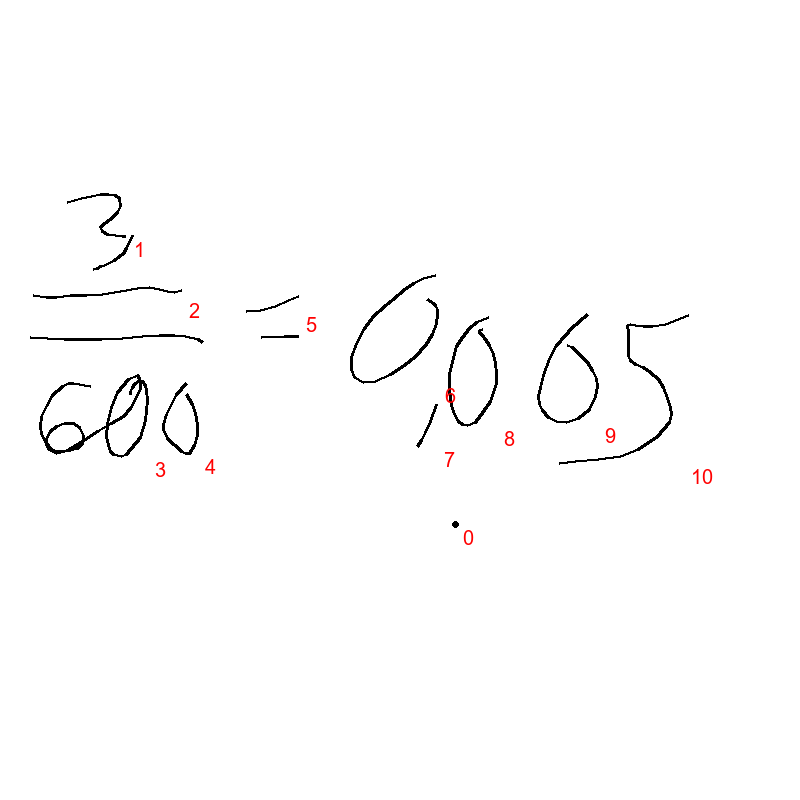 3
600
= 0,005
1
2
3
4
5
6
7
8
9
10
0